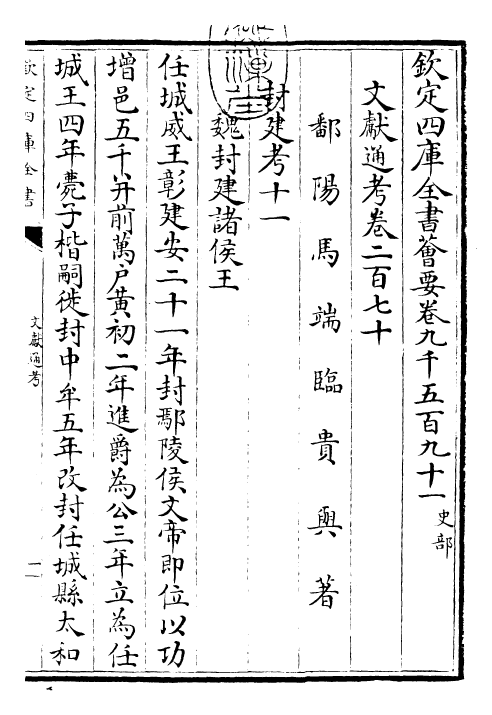 欽定四庫全書薈要卷九千五百九十一 史部
文獻通考卷二百七十
鄱陽馬端臨貴與著
封建考十一
魏封建諸侯王
任城威王彰建安二十一年封鄢陵侯文帝即位以功
增邑五千并前萬戸黃初二年進爵為公三年立為任
城王四年薨子楷嗣徙封中牟五年改封任城縣太和
欽定四庫全書
文獻通考